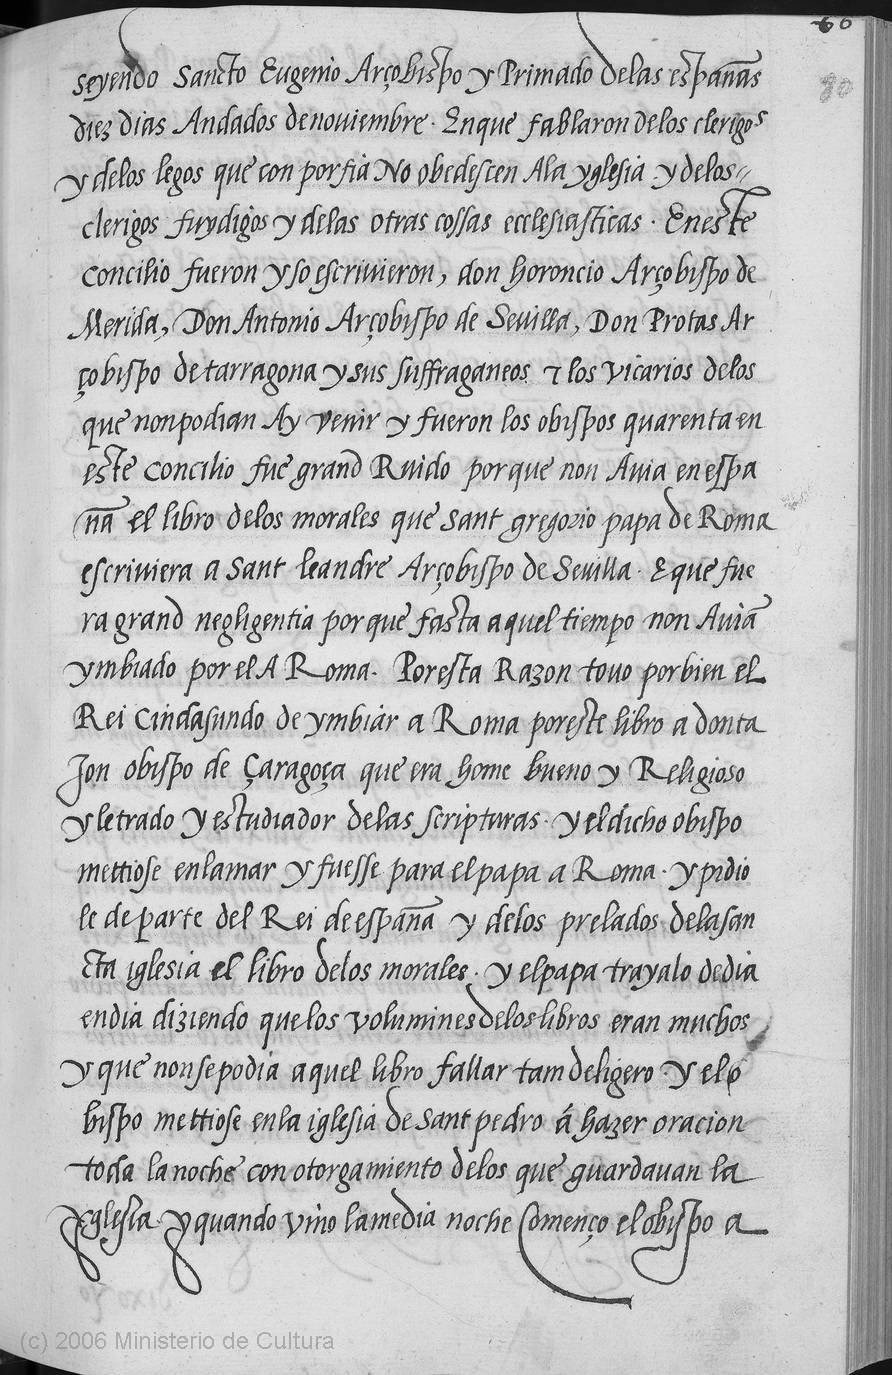 60
80
seyendo Sancto Eugenio Arçobispo y Primado delas españas
diez dias Andados de noviembre. Enque fablaron delos clerigos
y delos legos que con porfia No obedescen Ala yglesia y delos
clerigos fuydigos y delas otras cossas ecclesiasticas. Eneste
concilio fueron y so escrivieron, don horoncio Arçobispo de
Merida, Don Antonio Arçobispo de Sevilla, Don Protas Ar
çobispo de tarragona y sus suffraganeos τ los vicarios delos
que nonpodian Ay venir y fueron los obispos quarenta en
este concilio fue grand Ruido porque non Auia en espa
ña el libro delos morales que sant gregorio papa de Roma
escriviera a sant leandre Arçobispo de Sevilla. E que fue
ra grand negligentia porque fasta aquel tiempo non Auia
ymbiado por el A Roma. Poresta Razon tovo porbien el
Rei Cindasundo de ymbiar a Roma poreste libro a donta
Jon obispo de Çaragoça que era home bueno y Religioso
y letrado y estudiador delas scripturas. y el dicho obispo
mettiose enlamar y fuesse para el papa a Roma. y pidio
le de parte del Rei de españa y delos prelados dela san
cta iglesia el libro delos morales. y elpapa trayalo dedia
endia diziendo quelos volumines delos libros eran muchos
y que nonsepodia aquel libro fallar tam deligero. y el o
bispo mettiose enla iglesia de sant pedro á hazer oracion
toda la noche con otorgamiento delos que guardavan la
yglesia. y quando vino la media noche començo el obispo a
(c) 2006 Ministerio de Cultura